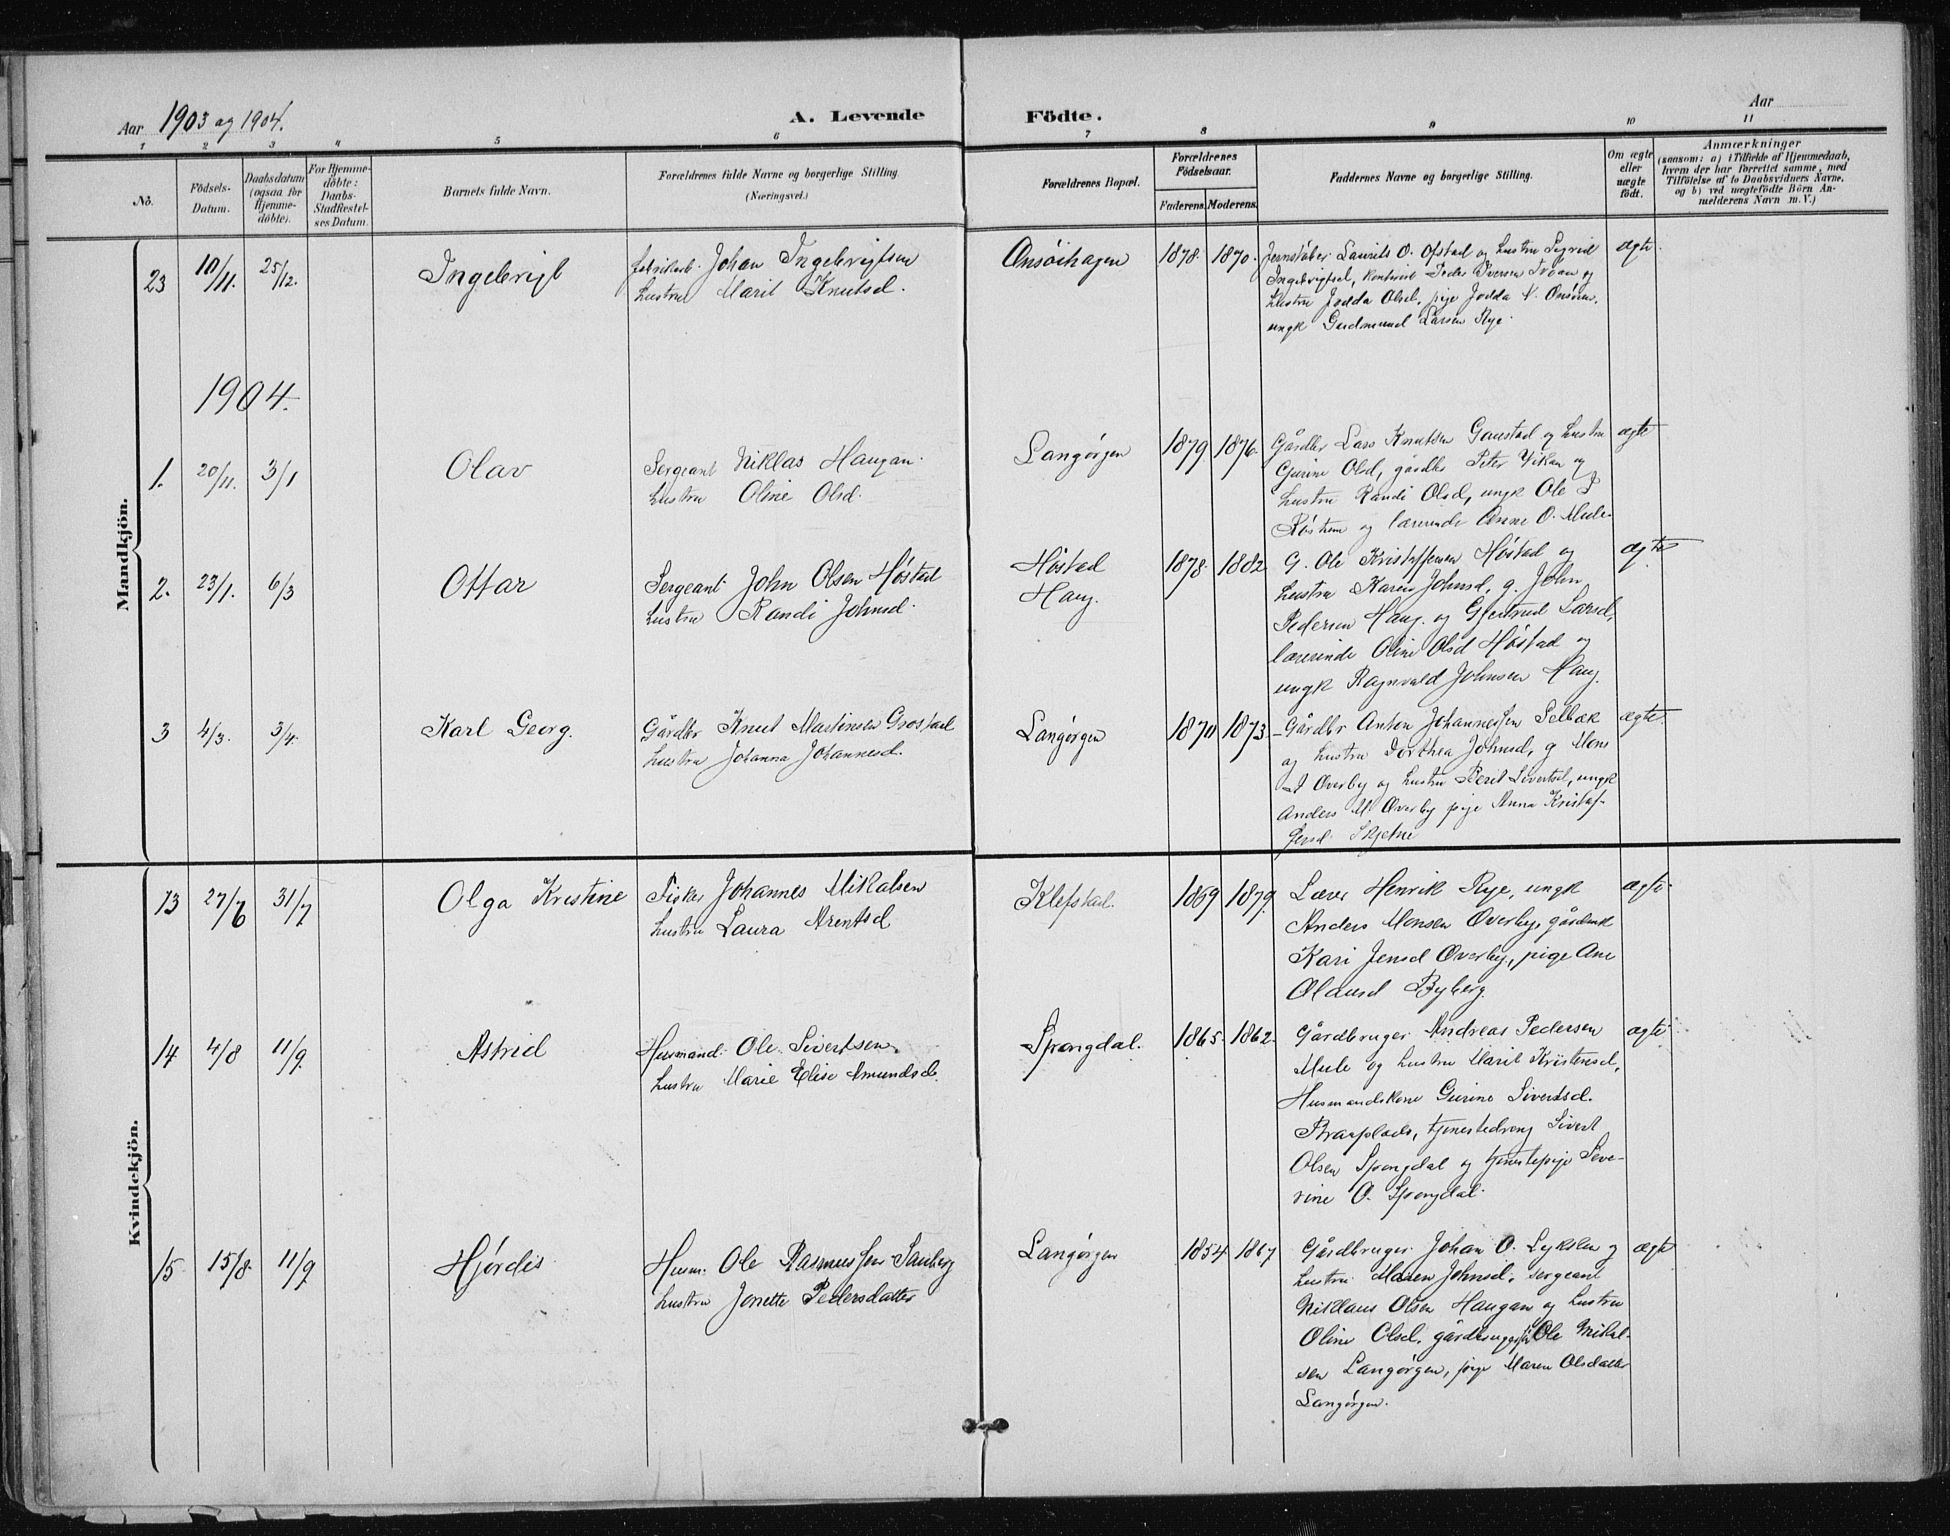 Aar 1903 og 1904.
A. Levende Födte.
Aar
1 2 3 4 5 6 7 8 9 10 11
No.
Födsels-Datum.
Daabsdatum (ogsaa for Hjemme-döbte).
For Hjemme-döbte: Daabs-Stadfæstel-ses Datum.
Barnets fulde Navn.
Forældrenes fulde Navne og borgerlige Stilling (Næringsvei.)
Forældrenes Bopæl.
Forældrenes Födselsaar.
Faderens. Moderens.
Faddernes Navne og borgerlige Stilling.
Om ægte eller uægte födt.
Anmærkninger
(saasom: a) i Tilfælde af Hjemmedaab, hvem der har forrettet samme, med Tilföielse af to Daabsvidners Navne, og b) ved uægtefödte Börn An-melderens Navn m. V.)
Mandkjön.
23 10/11. 25/12. Ingebrigt
Johan Ingebrigtsen
hustru Marit Knutsd.
Onsöihagen 1878. 1870.
Jernstöber Laurits O. Ofstad og hustru Sigrid
Ingebrigtsd, Peder Iversen og
hustru Jodda Olsd. pige Jodda
ungk Gudmund Larsen Rye.
ægte.
1904.
1. 20/11. 3/1 Olav
Sergeant Niklas Haugan.
hustru Oline Olsd.
Langørgen 1879 1876.
Gårdbr Lars Knutsen Gaustad og hustru
Gurine Olsd, gårdbr Peter Vikan og
hustru Randi Olsd, ungk Ole P
Røstum og lærerinde Anne O. Mule.
ægte
2. 23/1. 6/3 Ottar
Sergeant John Olsen Høstad
hustru Randi Johnsd.
Høstad
Haug.
1878 1882
G. Ole Kristoffersen Høstad og
hustru Karen Johnsd, g. John
Pedersen Haug. og Gjertrud Larsd,
lærerinde Oline Olsd Høstad og
ungk Ragnvald Johnsen Haug.
ægte
3 4/3. 3/4. Karl Georg.
Gårdbr Knut Martinsen Grostad
hustru Johanna Johannesd.
Langørgen 1870 1873
Gårdbr Anton Johannessen Selbæk
og hustru Dorthea Johnsd, g Mons
A Overby og hustru Berit Sivertsd, ungk
Anders M. Overby pige Anna Kristof-
fersd Skjetne
ægte.
Kvindekjön.
13 27/6 31/7 Olga Kristine
Fisker Johannes Mikalsen
hustru Laura Arentsd
Klefstad. 1869 1879.
Lærer Henrik Rye, ungk
Anders Monsen Overby, gårdmk
Kari Jensd Overby, pige Ane
Olausd Byberg.
ægte.
14 4/8 11/9. Astrid
Husmand. Ole Sivertsen.
hustru Marie Elise Amundsd.
Spongdal. 1865. 1862.
Gårdbruger Andreas Pedersen
Mule og hustru Marit Kristensd,
Husmandskone Gurine Sivertsd.
Braaplads, tjenestedreng Sivert
Olsen Spongdal og tjenestepige Seve-
rine O. Spongdal.
ægte.
15 15/8. 11/9 Hjørdis
Husm. Ole Rasmussen Sauberg
hustru Jonette Pedersdatter
Langørgen 1854 1867
Gårdbruger Johan O. Lykslen og
hustru Maren Johnsd, sergeant
Niklaus Olsen Haugan og hustru
Oline Olsd, gårdbruger Ole Mikal-
sen Langørgen, pige Maren Olsdatter
Langørgen.
ægte